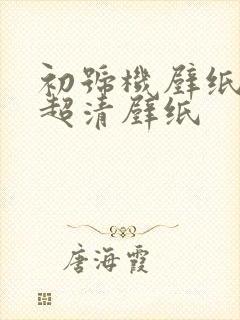 初號機壁纸
超清壁纸
唐海霞